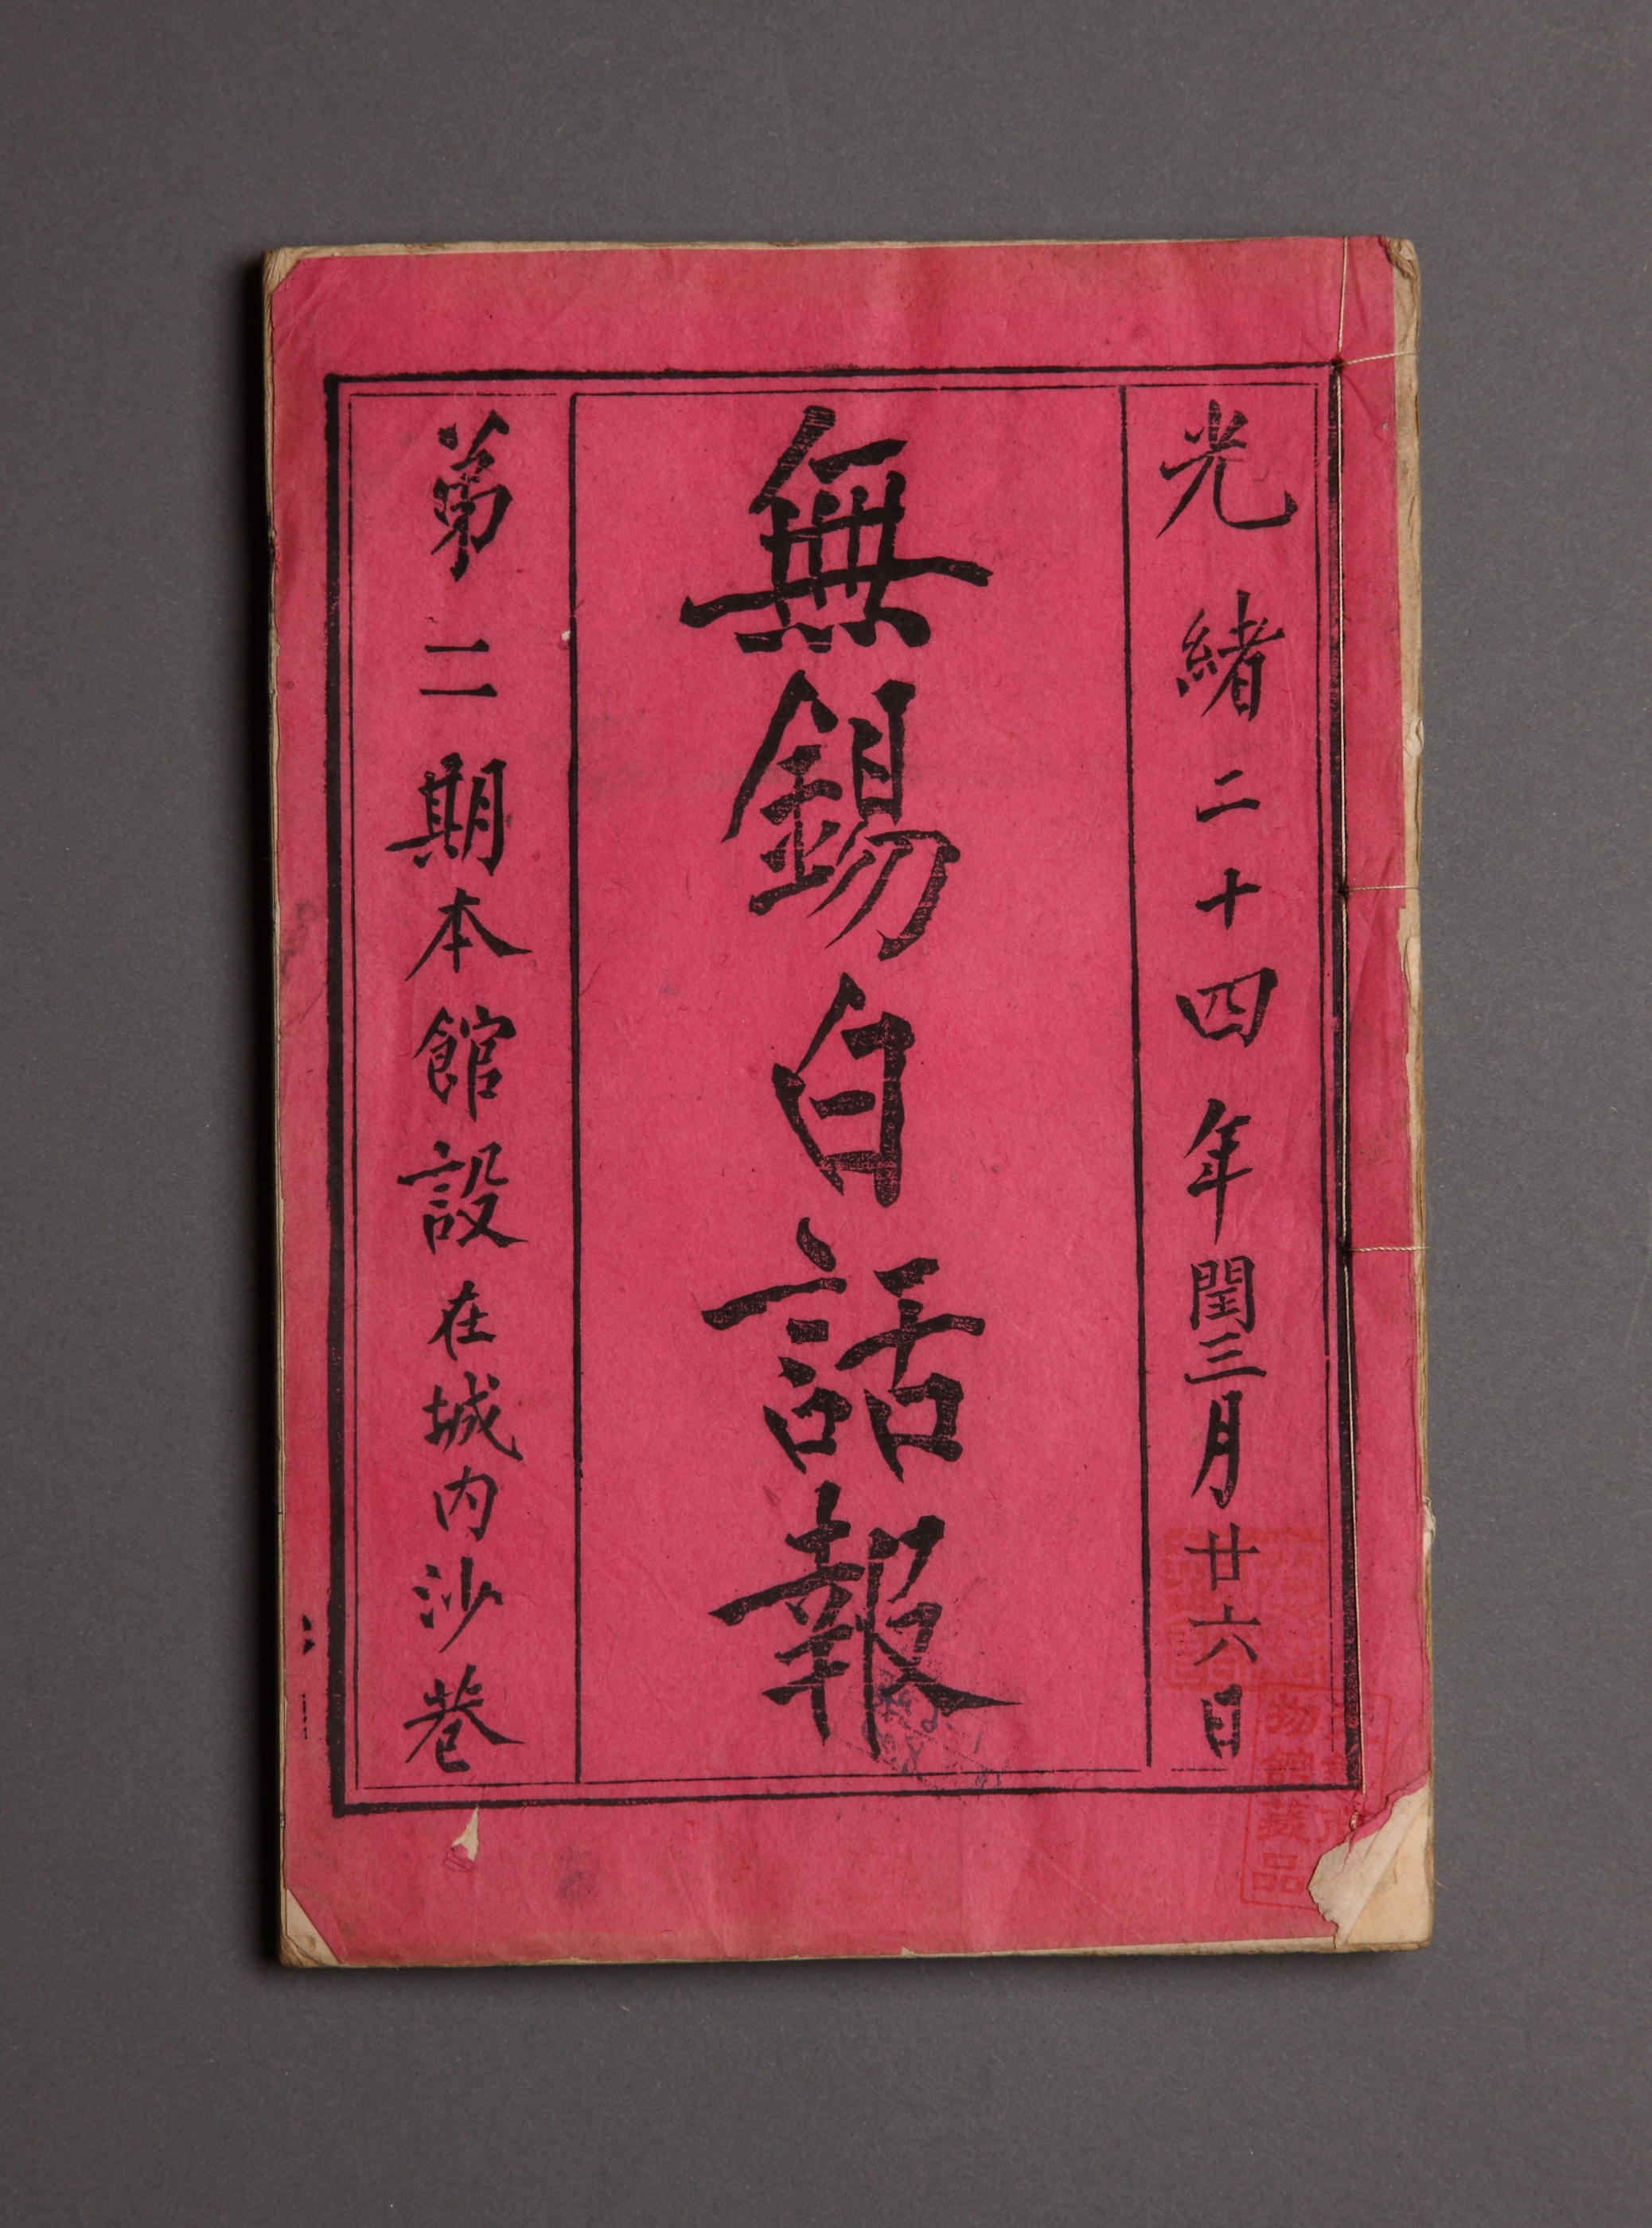 光緒二十四年閏三月廿六日
無錫白話報
第二期本館設在城内沙巷
物館蔵品